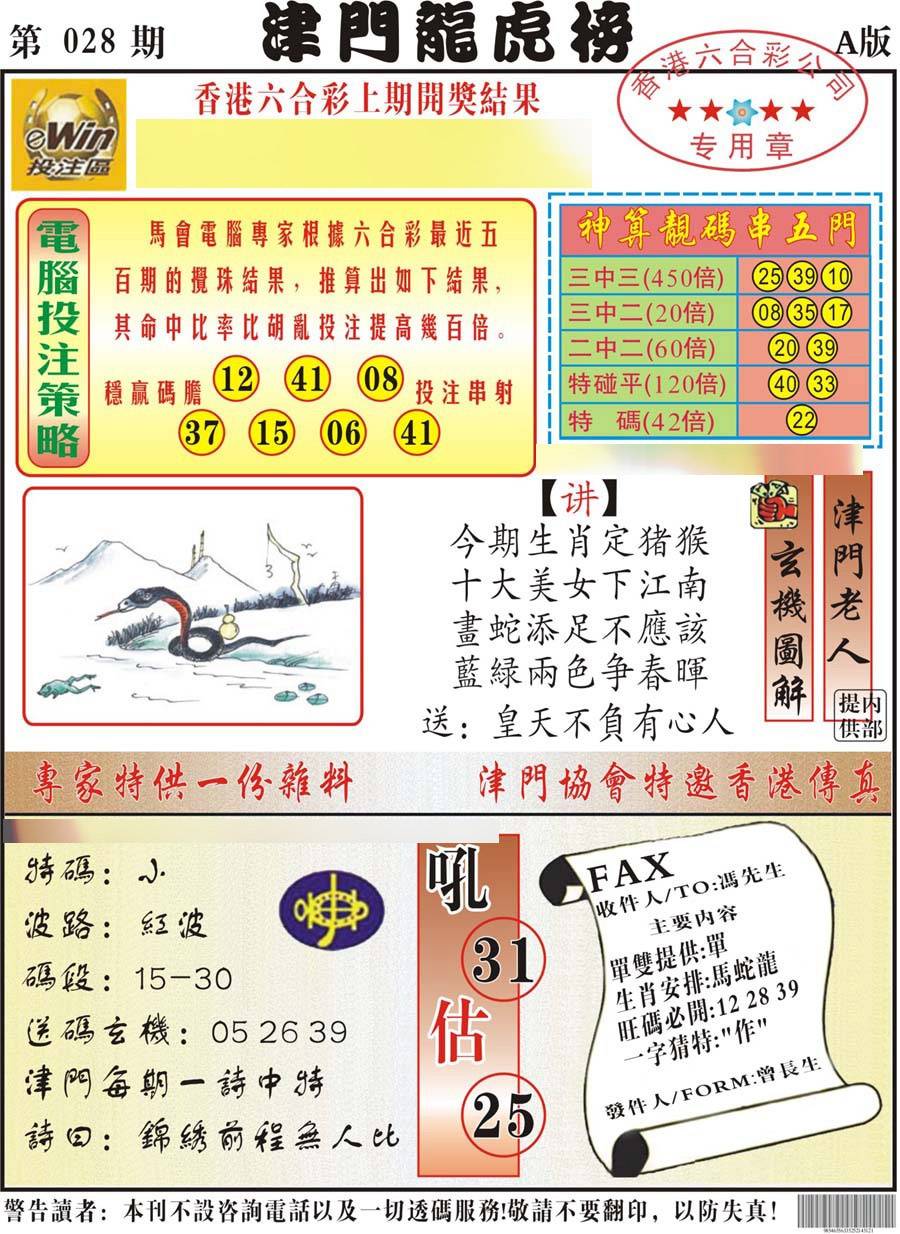 第 028 期
津門龍虎榜
A版
香港六合彩公司
★★★★
专用章
eWin
投注區
香港六合彩上期開獎結果
電腦投注策略
馬會電腦專家根據六合彩最近五
百期的攪珠結果，推算出如下結果，
其命中比率比胡亂投注提高幾百倍。
穩贏碼膽 12 41 08 投注串射
37 15 06 41
神算靚碼串五門
三中三(450倍) 25 39 10
三中二(20倍) 08 35 17
二中二(60倍) 20 39
特碰平(120倍) 40 33
特 碼(42倍) 22
【讲】
今期生肖定猪猴
十大美女下江南
畫蛇添足不應該
藍緑兩色争春暉
送：皇天不負有心人
玄機圖解
津門老人
内部提供
專家特供一份雜料
津門協會特邀香港傳真
特碼：小
波路：紅波
碼段：15-30
送碼玄機：05 26 39
津門每期一詩中特
詩曰：錦綉前程無人比
吼
31
估
25
FAX
收件人/TO:馮先生
主要内容
單雙提供:單
生肖安排:馬蛇龍
旺碼必開:12 28 39
一字猜特:"作"
發件人/FORM:曾長生
警告讀者：本刊不設咨詢電話以及一切透碼服務!敬請不要翻印，以防失真!